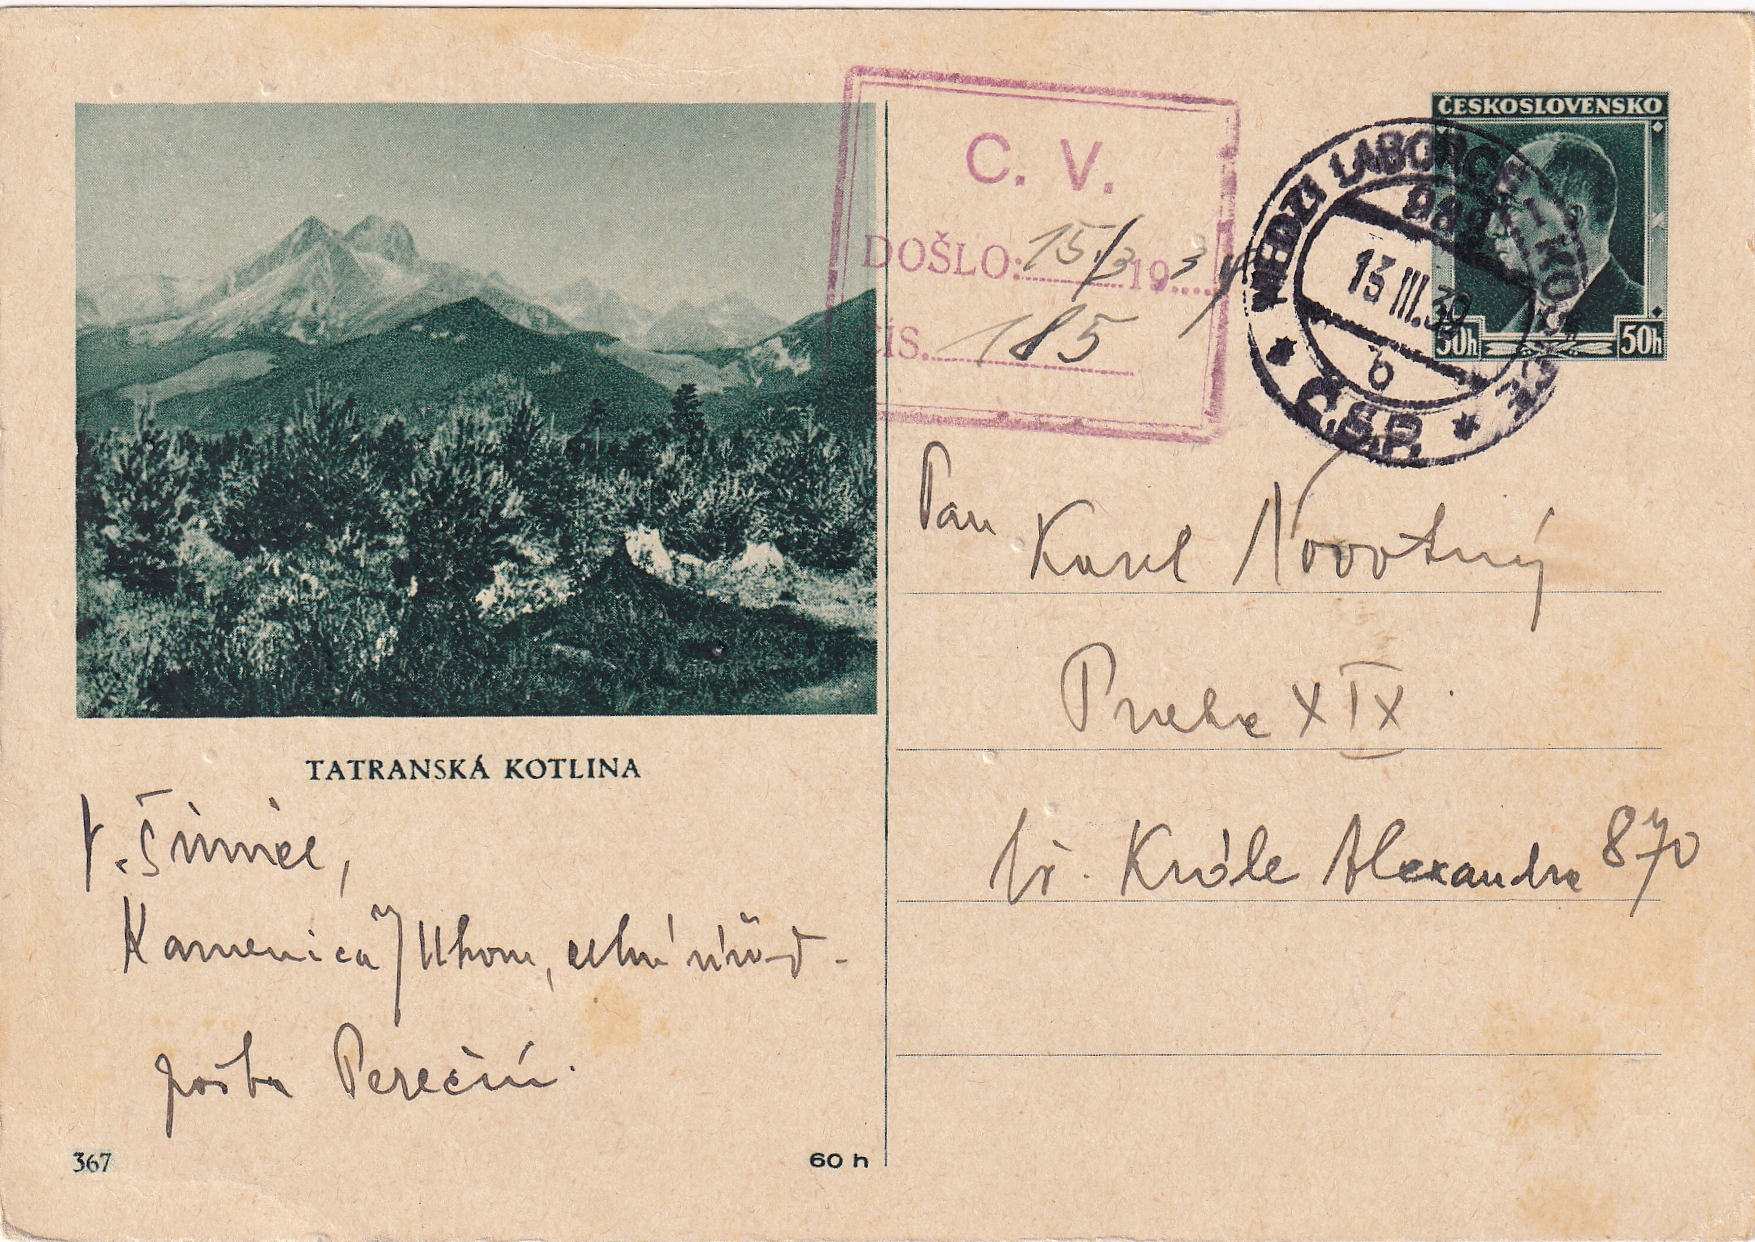 ČESKOSLOVENSKO
50h 50h
MEDZI LABORCE KOŠICE
13 III. 39
b
Č.S.P.
C. V.
DOŠLO: 15/3 1939
ČÍS. 185
Pan Karel Novotný
Praha XIX.
tř. Krále Alexandra 870
TATRANSKÁ KOTLINA
Kamenica n/Uhom, celní úřad.
pošta Perečín.
367
60 h